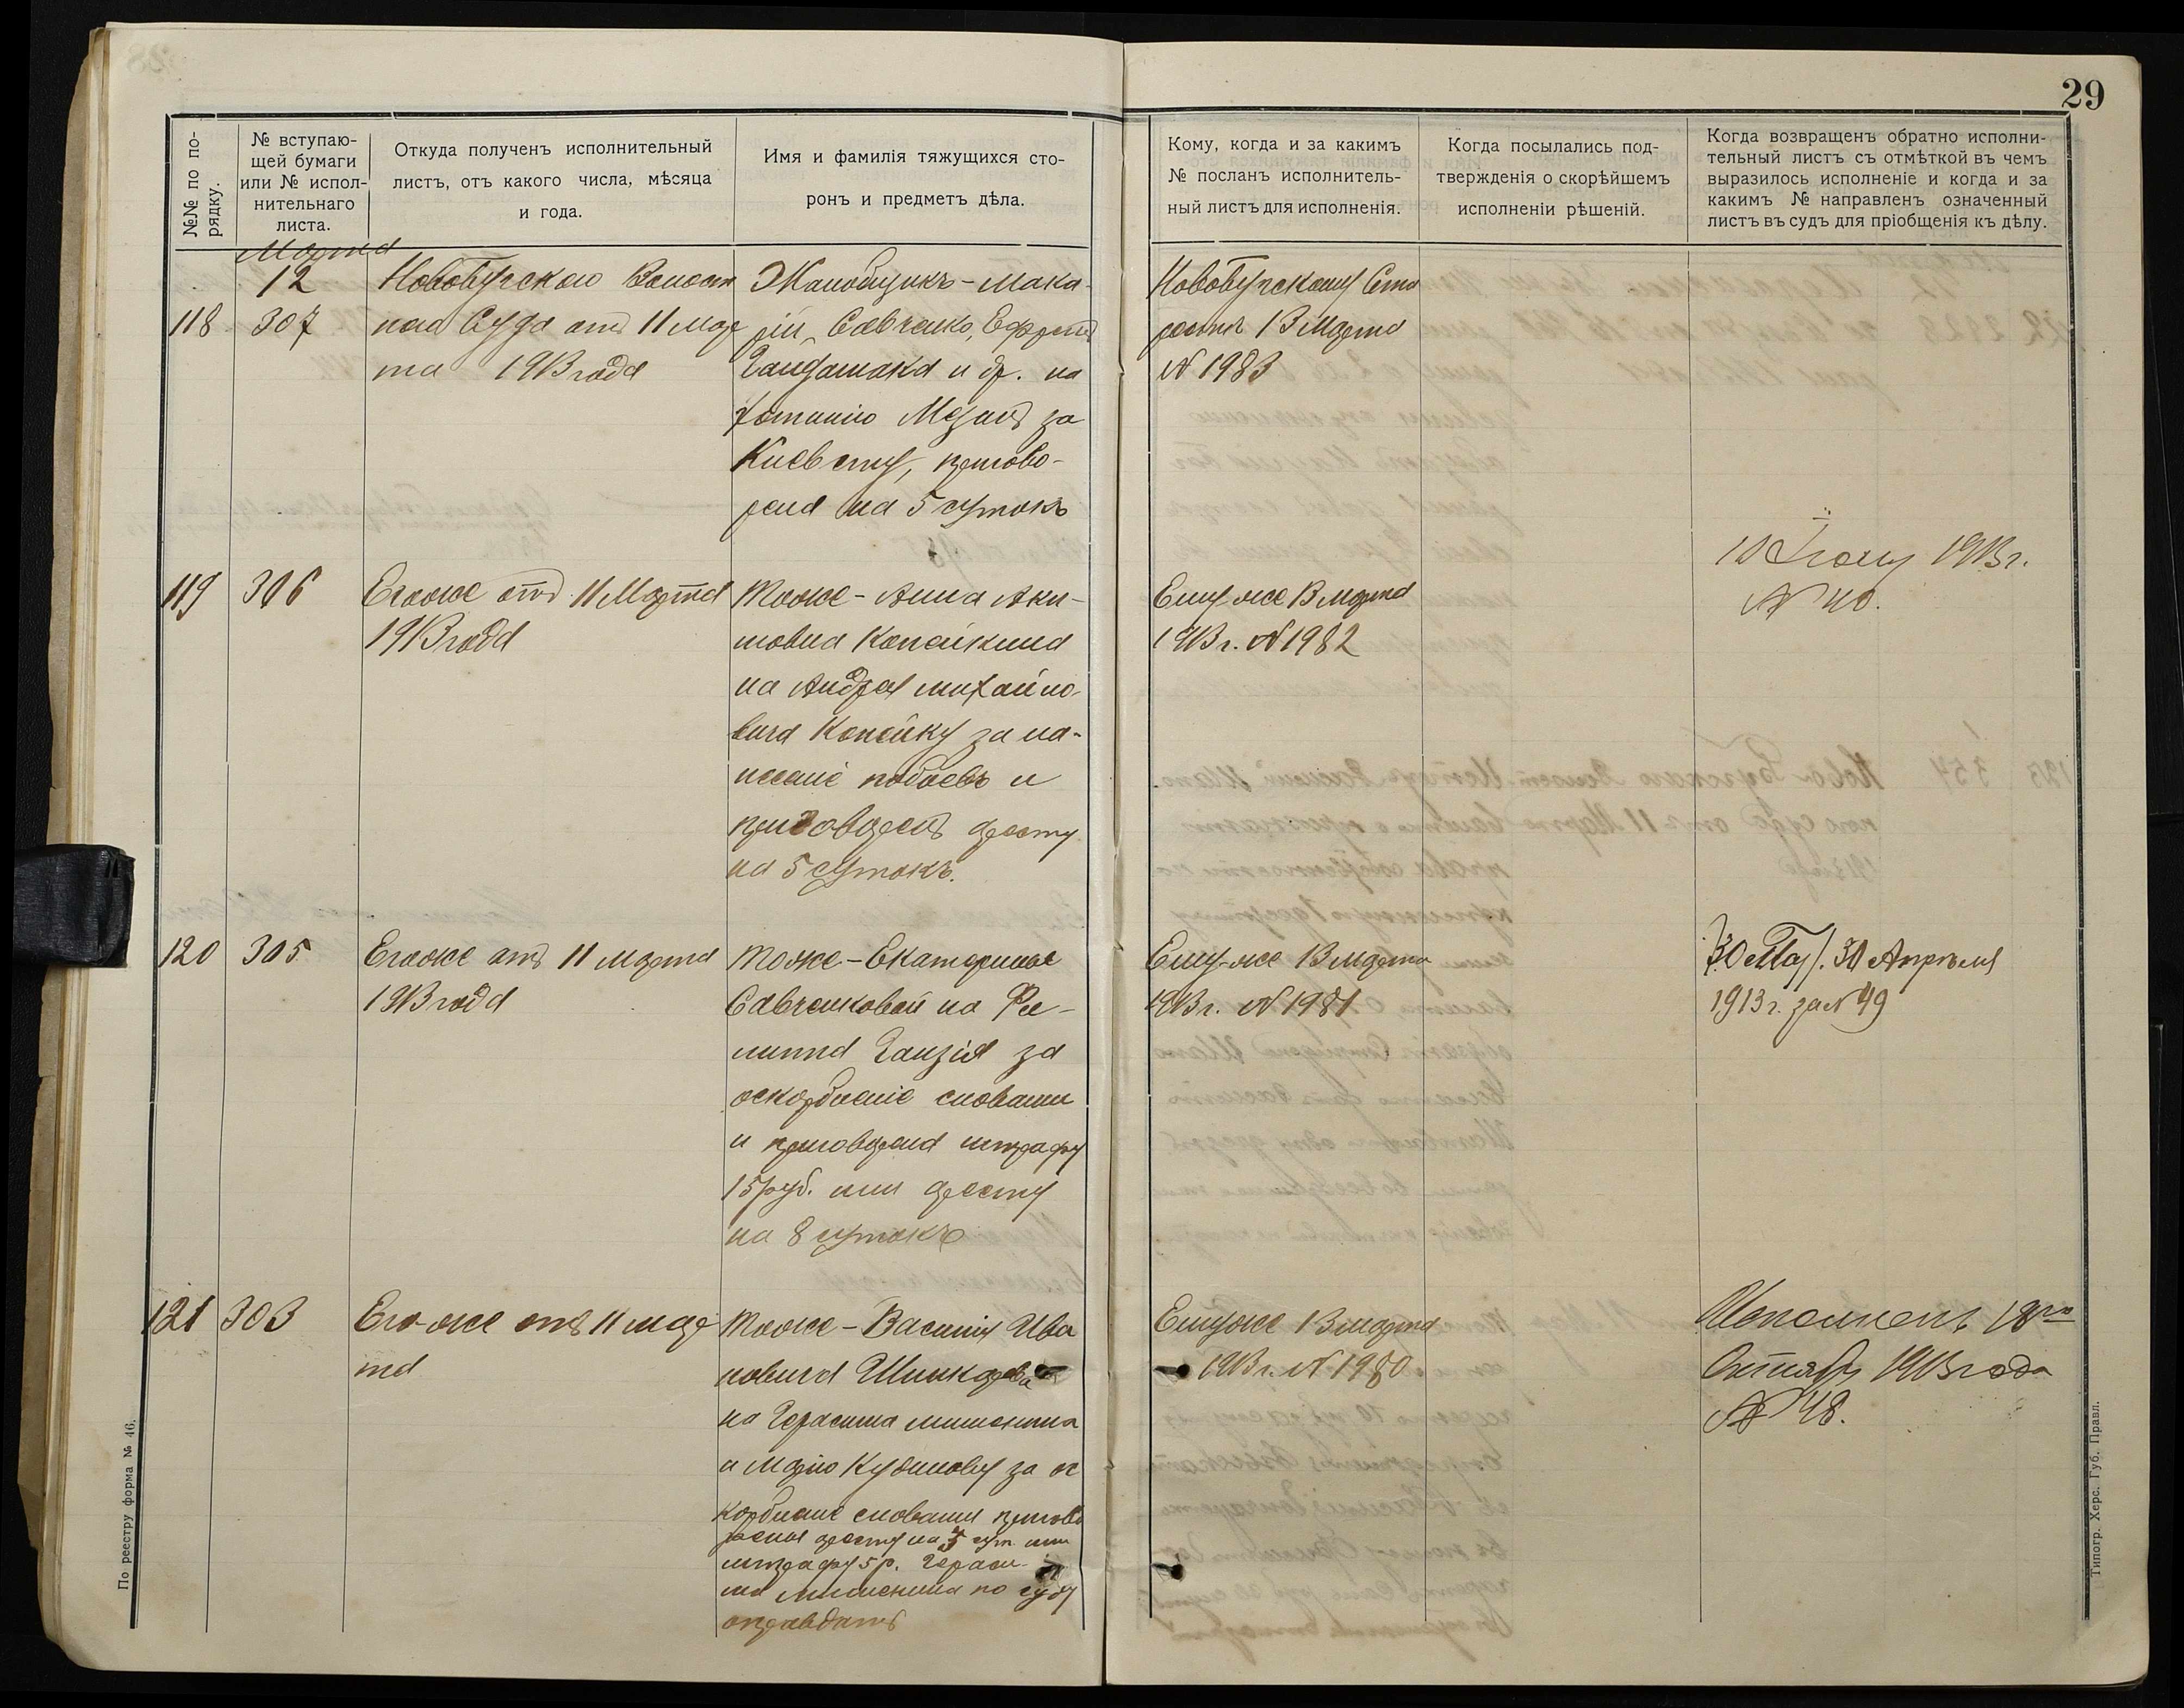 29
№№ по по-
рядку.
№ вступаю-
щей бумаги
или № испол-
нительнаго
листа.
Откуда полученъ исполнительный
листъ, отъ какого числа, мѣсяца
и года.
Имя и фамилія тяжущихся сто-
ронъ и предметъ дѣла.
Кому, когда и за какимъ
№ посланъ исполнитель-
ный листъ для исполненія.
Когда посылались под-
твержденія о скорѣйшемъ
исполненіи рѣшеній.
Когда возвращенъ обратно исполни-
тельный листъ съ отмѣткой въ чемъ
выразилось исполненіе и когда и за
какимъ № направленъ означенный
листъ въ судъ для пріобщенія къ дѣлу.
Марта
12
118 307
Новобугскаго Волост
наго Суда отъ 11 Мар
та 1913 года
Жалобщикъ - Мака-
рій Савченко, Ефремъ
и др. на
за
Клевету, пригово-
рена на 5 сутокъ
Новобугскому Ста
ростѣ 13 Марта
№ 1983
119 306
Егоже отъ 11 Марта
1913 года
Тоже - Анна Аки-
мовна Копейкина
на Андрея Михайло-
вича Копейку за на-
несеніе побоевъ и
приговоренъ аресту
на 5 сутокъ.
Ему-же 13 марта
1913 г. № 1982
1913 г.
№ 40.
120 305
Егоже отъ 11 марта
1913 года
Тоже - Екатерины
Савченковой на Фи-
за
оскорбленіе словами
и приговорена штрафу
15 руб. или аресту
на 8 сутокъ
Ему-же 13 марта
1913 г. № 1981
30 Апрѣля
1913 г. за № 49
121 303
Его-же отъ 11 мар
та
Тоже - Василія Ива
новича Шинкарева
на Герасима
и Марію Кудинову за ос
корбленіе словами пригово
рены аресту на сут или
штрафу 5 р. Гераси-
ма по суду
оправдать
Ему же 13 марта
1913 г. № 1980
Исполненъ 18го
Октября 1913 года
№ 48.
По реестру форма № 46.
Типогр. Херс. Губ. Правл.